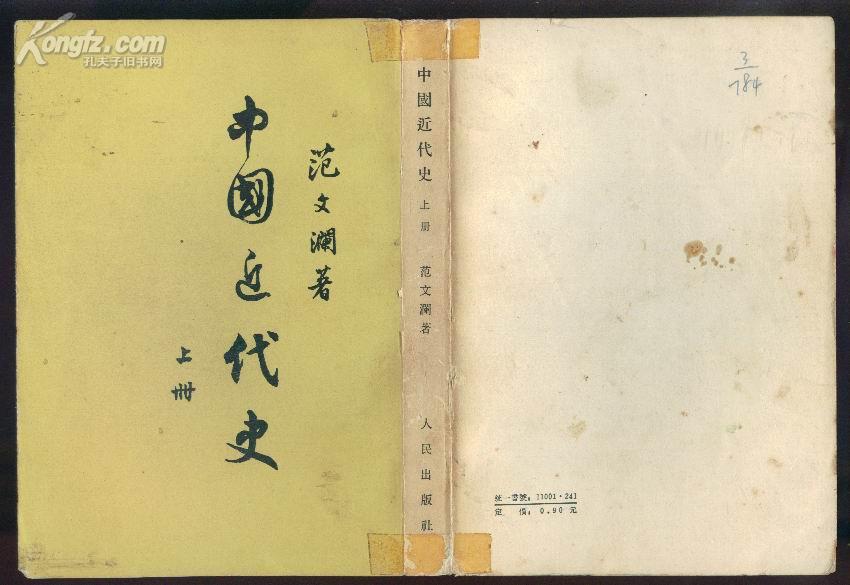 Kongfz.com
孔夫子旧书网
范文瀾著
中國近代史
上冊
中國近代史
上册
范文瀾著
人民出版社
3
784
统一書號：11001·241
定價：0.90元